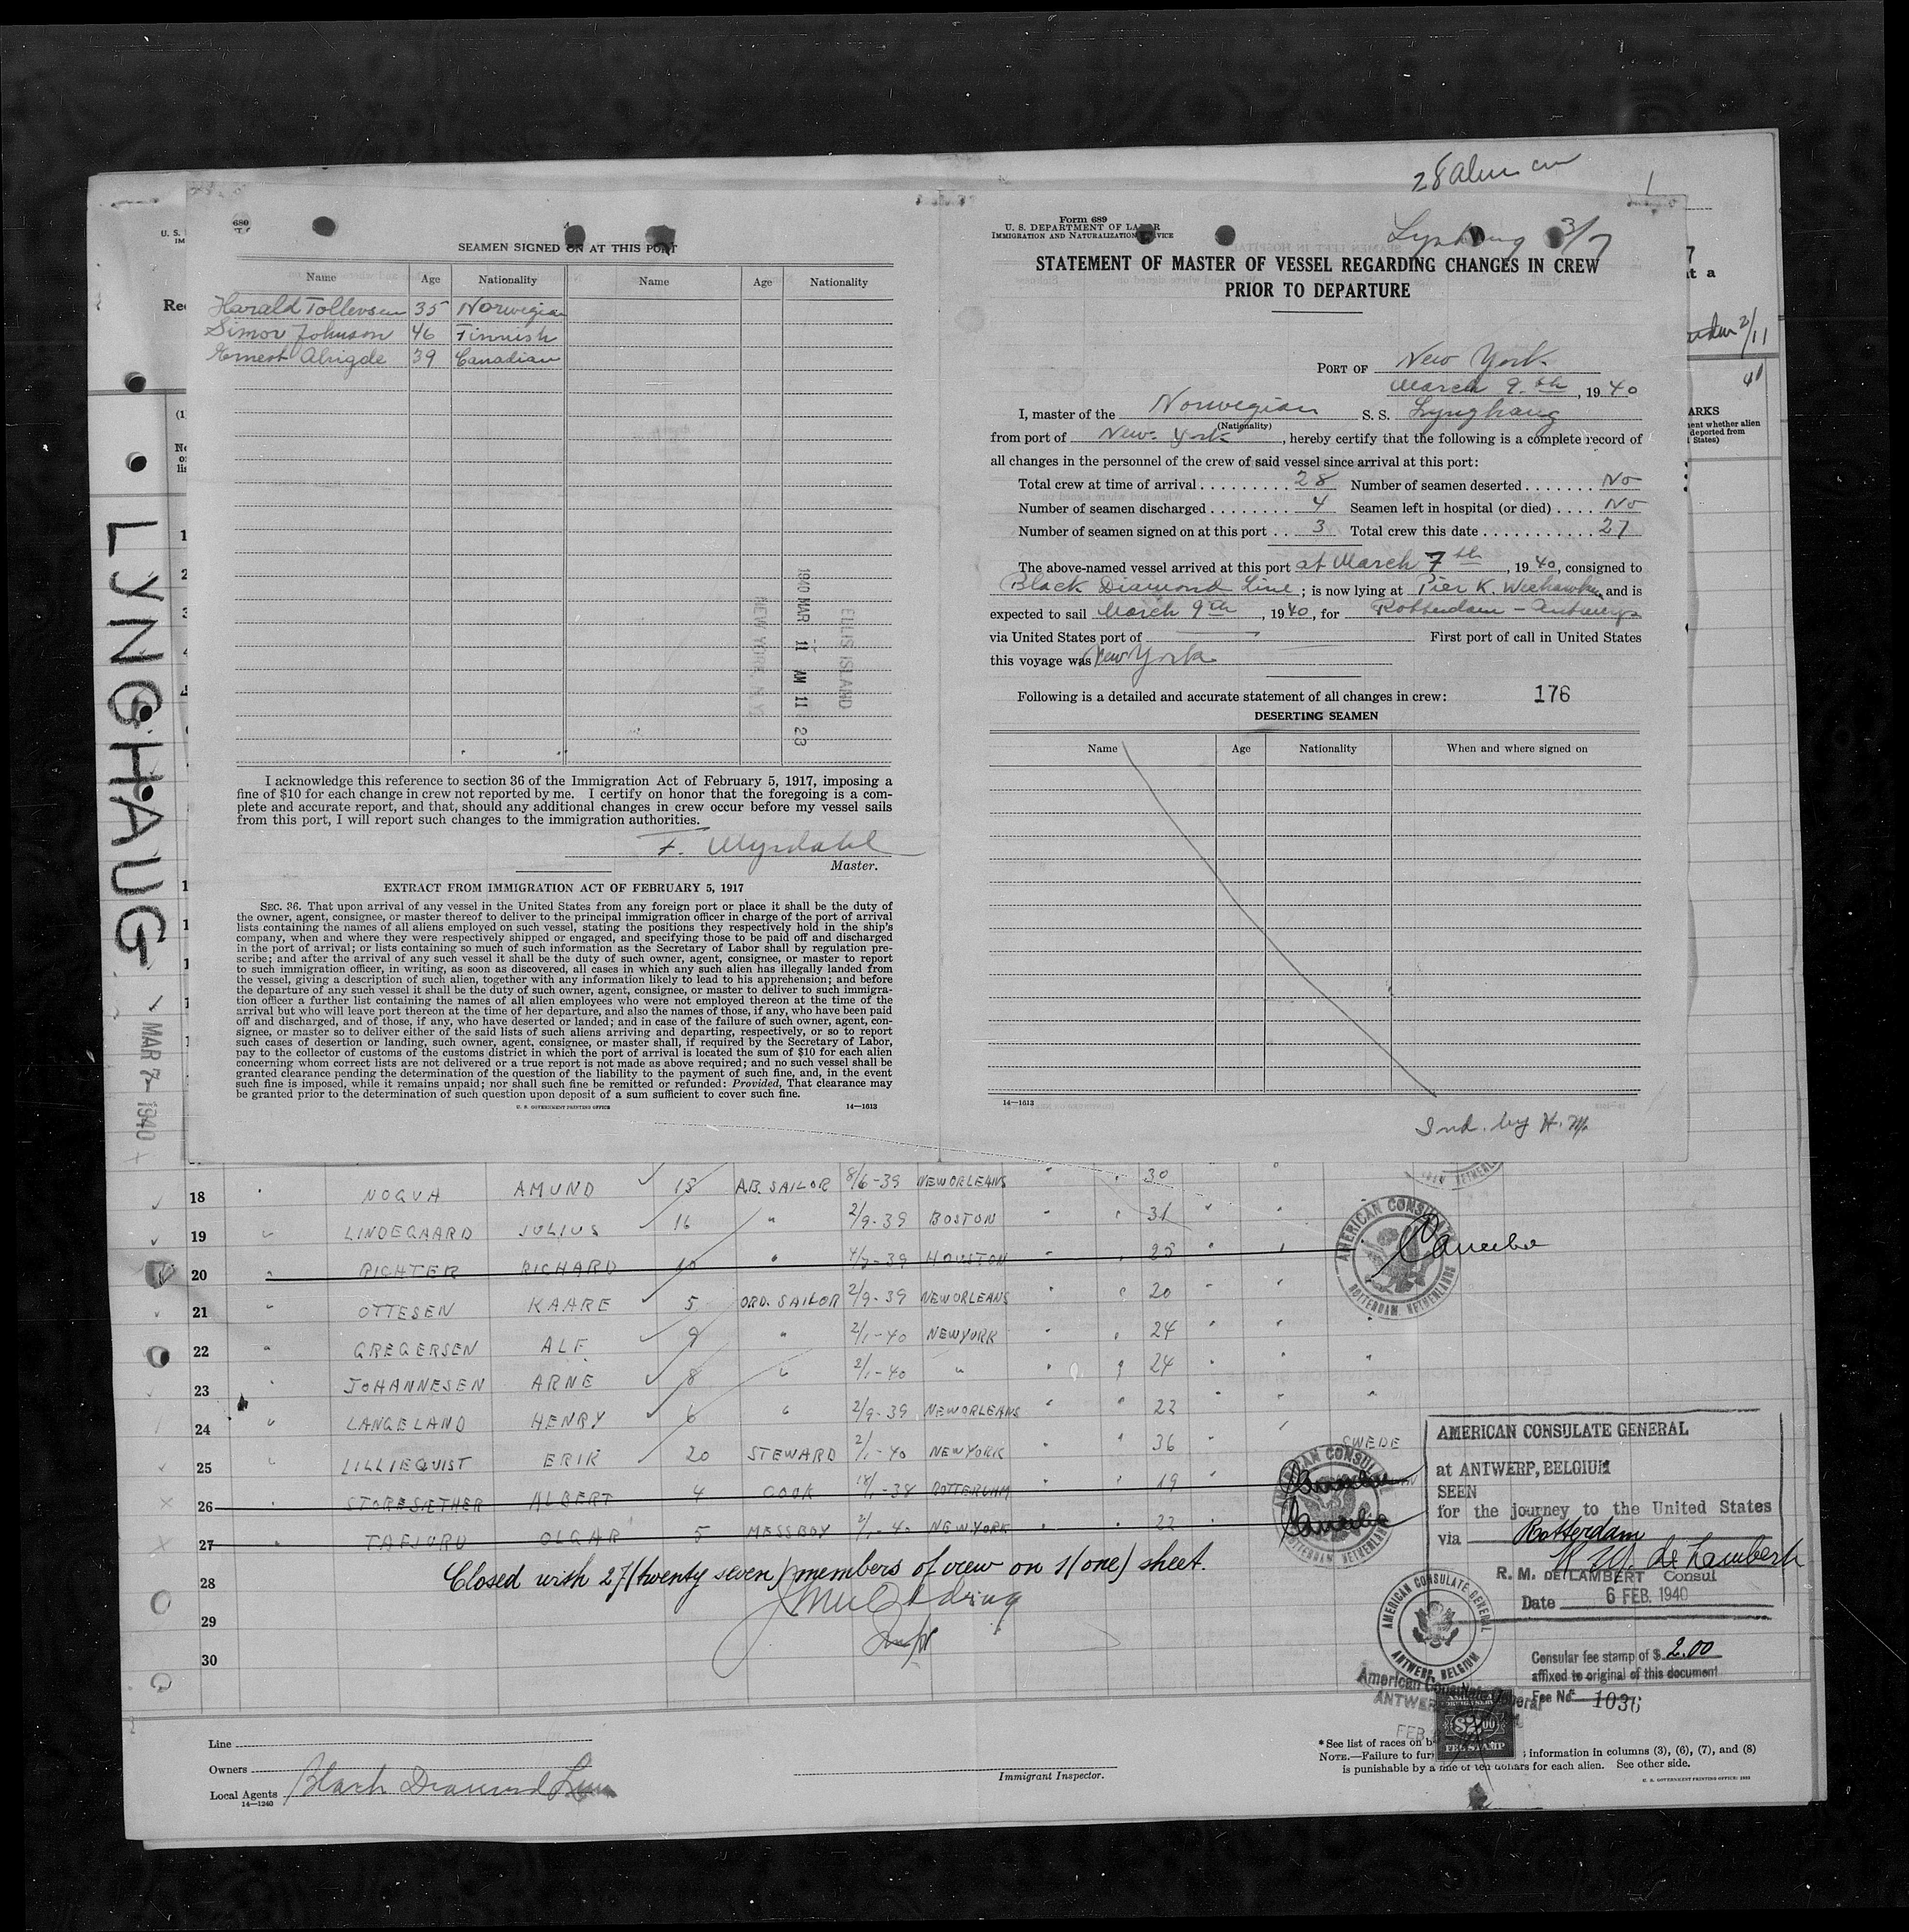 28 Alien
SEAMEN SIGNED ON AT THIS PORT
Name Age Nationality Name Age Nationality
Harald Tollevsen 35 Norwegian
Simon Johnson 46 Finnish
Ernest 39 Canadian
1940 MAR 11 AM 11 23
ELLIS ISLAND
NEW YORK, N.Y.
I acknowledge this reference to section 36 of the Immigration Act of February 5, 1917, imposing a
fine of $10 for each change in crew not reported by me. I certify on honor that the foregoing is a com-
plete and accurate report, and that, should any additional changes in crew occur before my vessel sails
from this port, I will report such changes to the immigration authorities.
F. Myrdahl
Master.
EXTRACT FROM IMMIGRATION ACT OF FEBRUARY 5, 1917
SEC. 36. That upon arrival of any vessel in the United States from any foreign port or place it shall be the duty of
the owner, agent, consignee, or master thereof to deliver to the principal immigration officer in charge of the port of arrival
lists containing the names of all aliens employed on such vessel, stating the positions they respectively hold in the ship's
company, when and where they were respectively shipped or engaged, and specifying those to be paid off and discharged
in the port of arrival; or lists containing so much of such information as the Secretary of Labor shall by regulation pre-
scribe; and after the arrival of any such vessel it shall be the duty of such owner, agent, consignee, or master to report
to such immigration officer, in writing, as soon as discovered, all cases in which any such alien has illegally landed from
the vessel, giving a description of such alien, together with any information likely to lead to his apprehension; and before
the departure of any such vessel it shall be the duty of such owner, agent, consignee, or master to deliver to such immigra-
tion officer a further list containing the names of all alien employees who were not employed thereon at the time of the
arrival but who will leave port thereon at the time of her departure, and also the names of those, if any, who have been paid
off and discharged, and of those, if any, who have deserted or landed; and in case of the failure of such owner, agent, con-
signee, or master so to deliver either of the said lists of such aliens arriving and departing, respectively, or so to report
such cases of desertion or landing, such owner, agent, consignee, or master shall, if required by the Secretary of Labor,
pay to the collector of customs of the customs district in which the port of arrival is located the sum of $10 for each alien
concerning whom correct lists are not delivered or a true report is not made as above required; and no such vessel shall be
granted clearance pending the determination of the question of the liability to the payment of such fine, and, in the event
such fine is imposed, while it remains unpaid; nor shall such fine be remitted or refunded: Provided, That clearance may
be granted prior to the determination of such question upon deposit of a sum sufficient to cover such fine.
U. S. GOVERNMENT PRINTING OFFICE 14—1613
Form 689
U. S. DEPARTMENT OF LABOR
IMMIGRATION AND NATURALIZATION SERVICE
Lynghaug 3/7
STATEMENT OF MASTER OF VESSEL REGARDING CHANGES IN CREW
PRIOR TO DEPARTURE
PORT OF New York
March 9th, 1940
I, master of the Norwegian S. S. Lynghaug
(Nationality)
from port of New York, hereby certify that the following is a complete record of
all changes in the personnel of the crew of said vessel since arrival at this port:
Total crew at time of arrival 28 Number of seamen deserted No
Number of seamen discharged 4 Seamen left in hospital (or died) No
Number of seamen signed on at this port 3 Total crew this date 27
The above-named vessel arrived at this port at March 7th, 1940, consigned to
Black Diamond Line; is now lying at Pier K. Weehawken and is
expected to sail March 9th, 1940, for Rotterdam - Antwerp
via United States port of First port of call in United States
this voyage was New York
Following is a detailed and accurate statement of all changes in crew: 176
DESERTING SEAMEN
Name Age Nationality When and where signed on
14—1613
Ind. by H. M.
LYNGHAUG
MAR 7-1940
18 NOGVA AMUND 13 A.B. SAILOR 8/6-39 NEWORLEANS 30
19 LINDEGAARD JULIUS 16 " 2/9-39 BOSTON 31
20 RICHTER RICHARD 10 " 4/7-39 HOUSTON 25
21 OTTESEN KAARE 5 ORD. SAILOR 2/9-39 NEWORLEANS 20
22 GREGERSEN ALF 9 " 2/1-40 NEWYORK 24
23 JOHANNESEN ARNE 8 " 2/1-40 " 24
24 LANGELAND HENRY 6 " 2/9-39 NEWORLEANS 22
25 LILLIEQUIST ERIK 20 STEWARD 2/1-40 NEWYORK 36 SWEDE
26 STORESÆTHER ALBERT 4 COOK 18/1-38 ROTTERDAM 19
27 TAFJORD OLGAR 5 MESSBOY 2/1-40 NEWYORK 22
28
29
30
Closed with 27 (twenty seven) members of crew on 1 (one) sheet.
AMERICAN CONSULATE
ROTTERDAM, NETHERLANDS
AMERICAN CONSULATE GENERAL
at ANTWERP, BELGIUM
SEEN
for the journey to the United States
via Rotterdam
R. M. DE LAMBERT Consul
Date 6 FEB. 1940
AMERICAN CONSULATE GENERAL
ANTWERP, BELGIUM
Consular fee stamp of $ 2.00
affixed to original of this document
Fee No. 1036
American Consulate General
$2.00
FEE STAMP
Line
Owners
Local Agents Black Diamond Line
14—1240
Immigrant Inspector.
* See list of races on b
NOTE.—Failure to fur information in columns (3), (6), (7), and (8)
is punishable by a fine of ten dollars for each alien. See other side.
U. S. GOVERNMENT PRINTING OFFICE